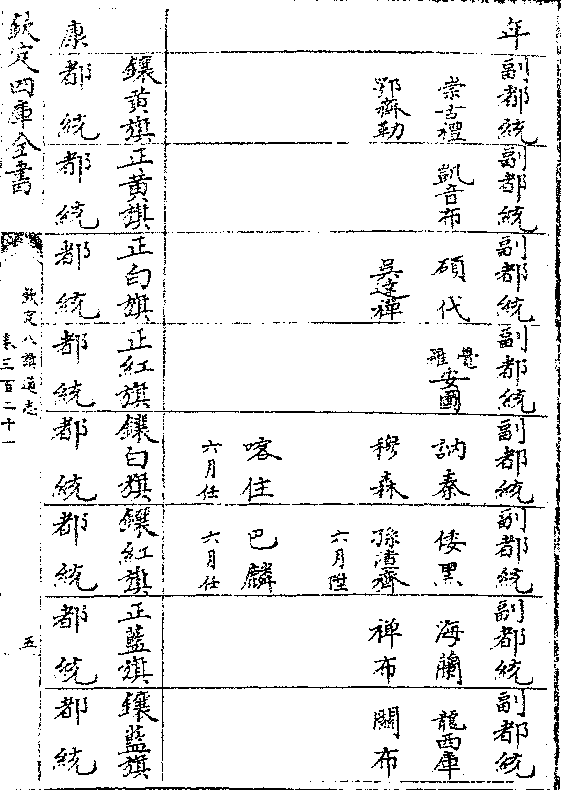 年 副都統 副都統 副都統 副都統 副都統 副都統 副都統 副都統
崇古禮 凱音布 碩代 覺羅安圖 訥秦 倭黑 海蘭 龍西庫
鄂齊勒 吳達禪 穆森 孫渣齊 禪布 關布
六月陞
喀住 巴麟
六月任 六月任
鑲黃旗 正黃旗 正白旗 正紅旗 鑲白旗 鑲紅旗 正藍旗 鑲藍旗
康 都統 都統 都統 都統 都統 都統 都統 都統
欽定四庫全書
欽定八旗通志
卷三百二十一
五